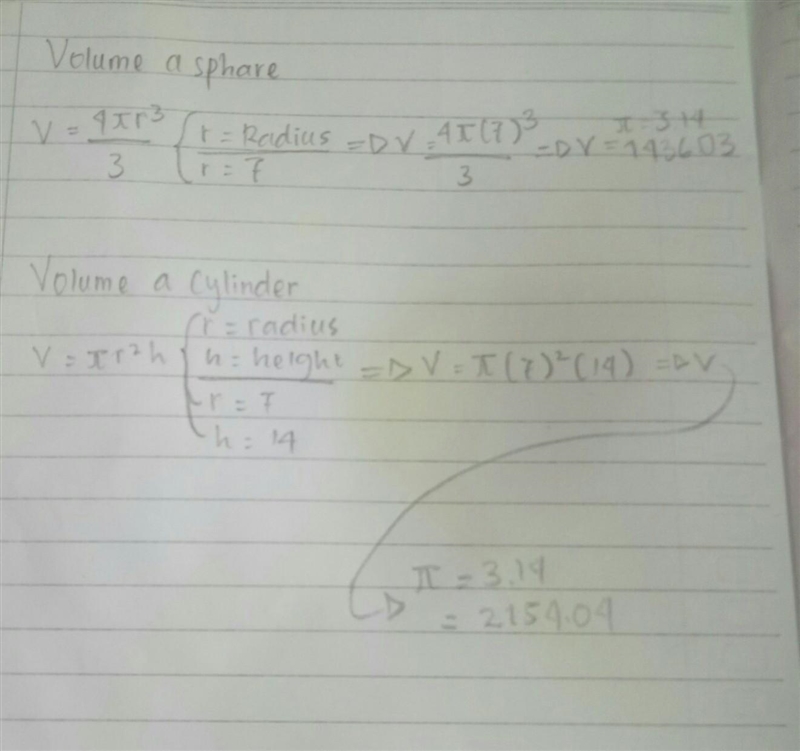 Volume a sphare
V = 4πr³/3 { r = Radius r = 7 => V = 4π(7)³/3 => π = 3.14 V = 143603
Volume a Cylinder
V = πr²h { r = radius h = height r = 7 h = 14 => V = π(7)²(14) => V
π = 3.14
= 2154.04